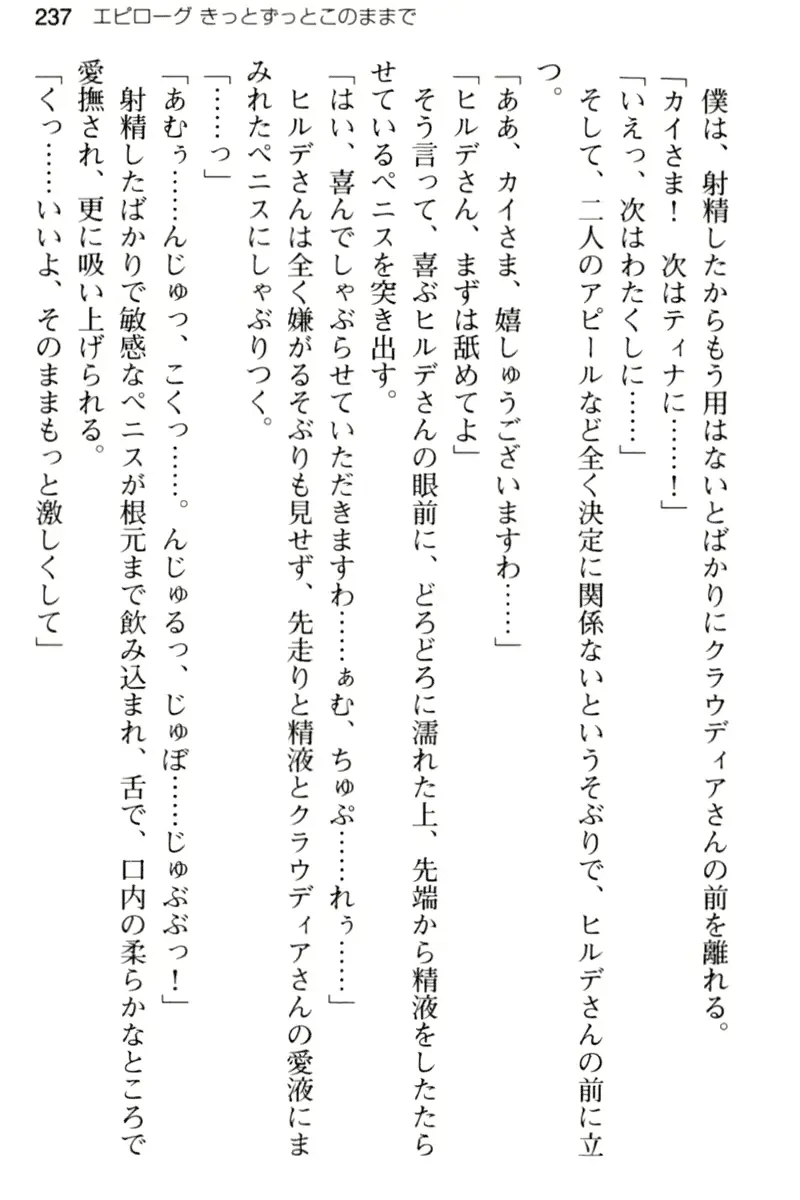 237 エピローグ きっとずっとこのままで
僕は、射精したからもう用はないとばかりにクラウディアさんの前を離れる。
「カイさま！ 次はティナに……！」
「いえっ、次はわたくしに……」
そして、二人のアピールなど全く決定に関係ないというそぶりで、ヒルデさんの前に立
つ。
「ああ、カイさま、嬉しゅうございますわ……」
「ヒルデさん、まずは舐めてよ」
そう言って、喜ぶヒルデさんの眼前に、どろどろに濡れた上、先端から精液をしたたら
せているペニスを突き出す。
「はい、喜んでしゃぶらせていただきますわ……ぁむ、ちゅぷ……れぅ……」
ヒルデさんは全く嫌がるそぶりも見せず、先走りと精液とクラウディアさんの愛液にま
みれたペニスにしゃぶりつく。
「……っ」
「あむぅ……んじゅっ、こくっ……。んじゅるっ、じゅぽ……じゅぶぶっ！」
射精したばかりで敏感なペニスが根元まで飲み込まれ、舌で、口内の柔らかなところで
愛撫され、更に吸い上げられる。
「くっ……いいよ、そのままもっと激しくして」